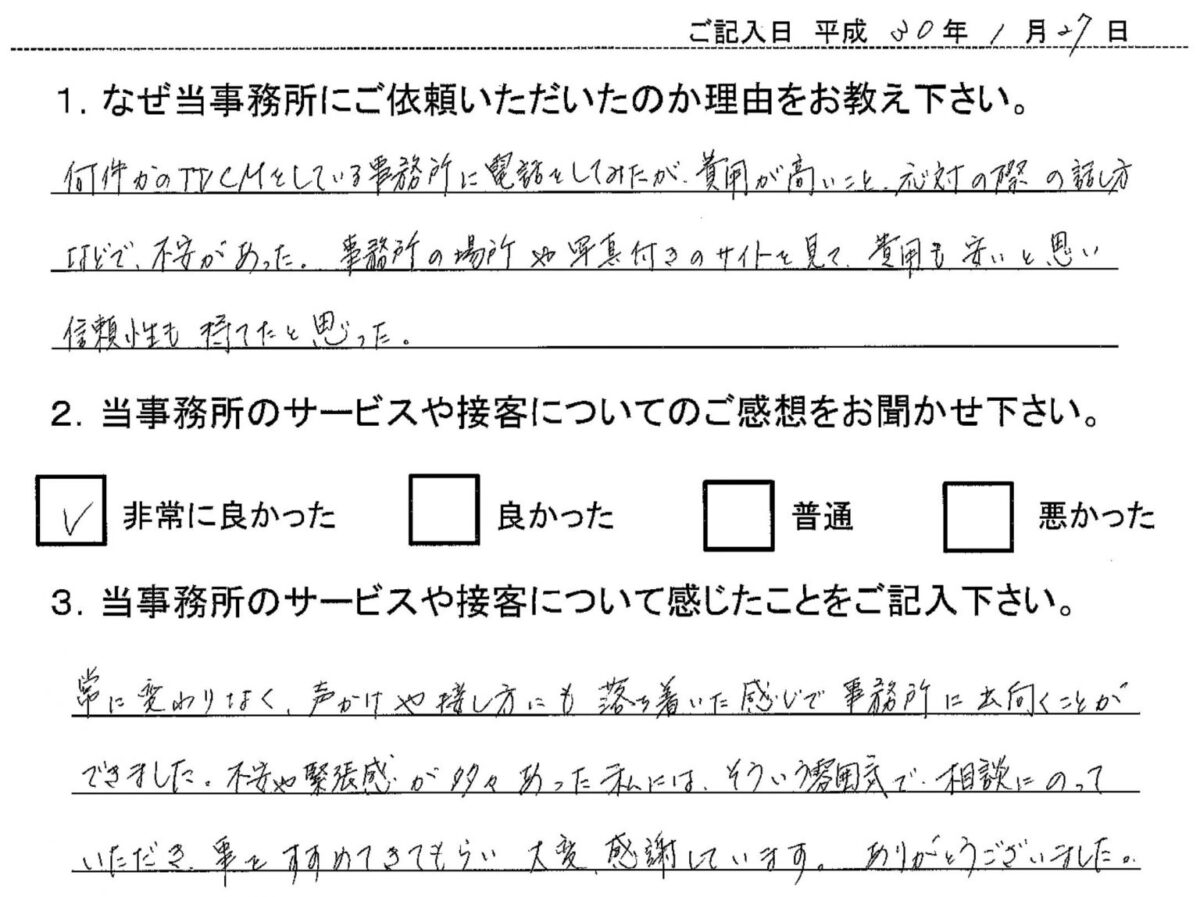 ご記入日 平成 30年 1月27日
1. なぜ当事務所にご依頼いただいたのか理由をお教え下さい。
何件かのTVCMをしている事務所に電話をしてみたが、費用が高いこと、応対の際の話し方
などで、不安があった。事務所の場所や写真付きのサイトを見て、費用も安いと思い
信頼性も持てたと思った。
2. 当事務所のサービスや接客についてのご感想をお聞かせ下さい。
✓ 非常に良かった 良かった 普通 悪かった
3. 当事務所のサービスや接客について感じたことをご記入下さい。
常に変わりなく、声かけや接し方にも落ち着いた感じで事務所に出向くことが
できました。不安や緊張感が多々あった私には、そういう雰囲気で、相談にのって
いただき、事をすすめてきてもらい大変、感謝しています。ありがとうございました。